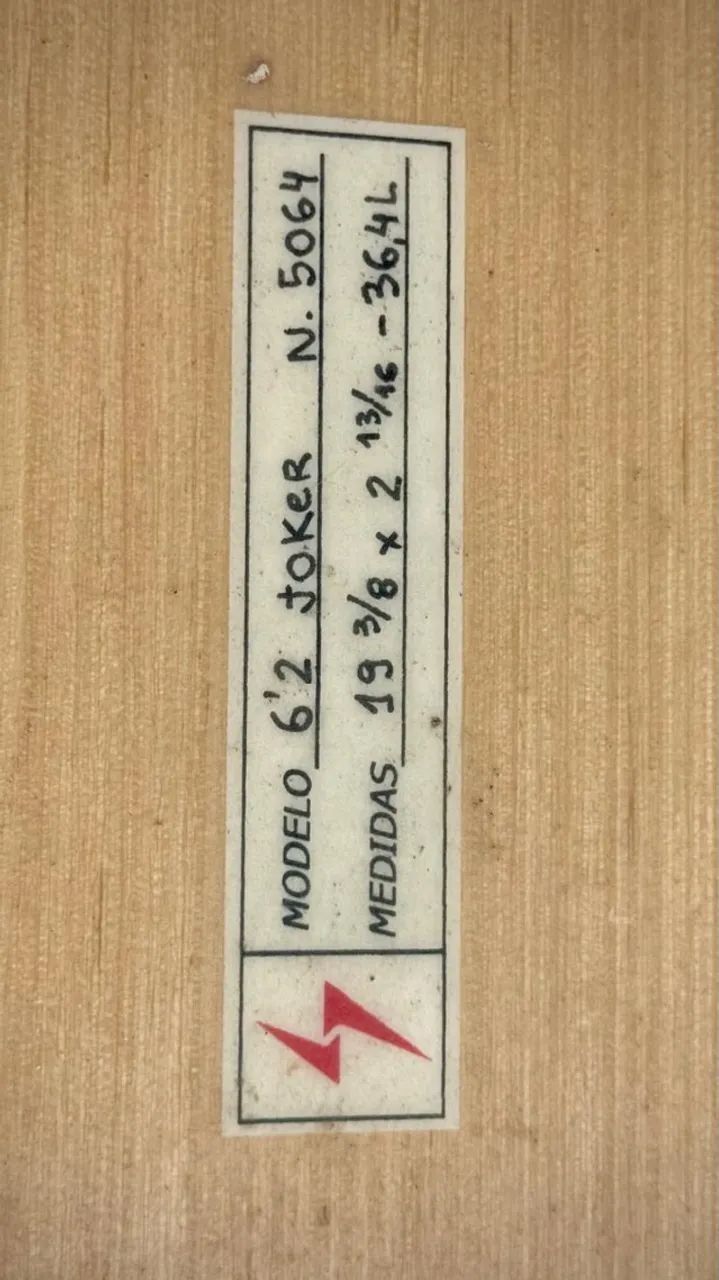 MODELO 6'2 JOKER N. 5064
MEDIDAS 19 3/8 x 2 13/16 - 36,4L